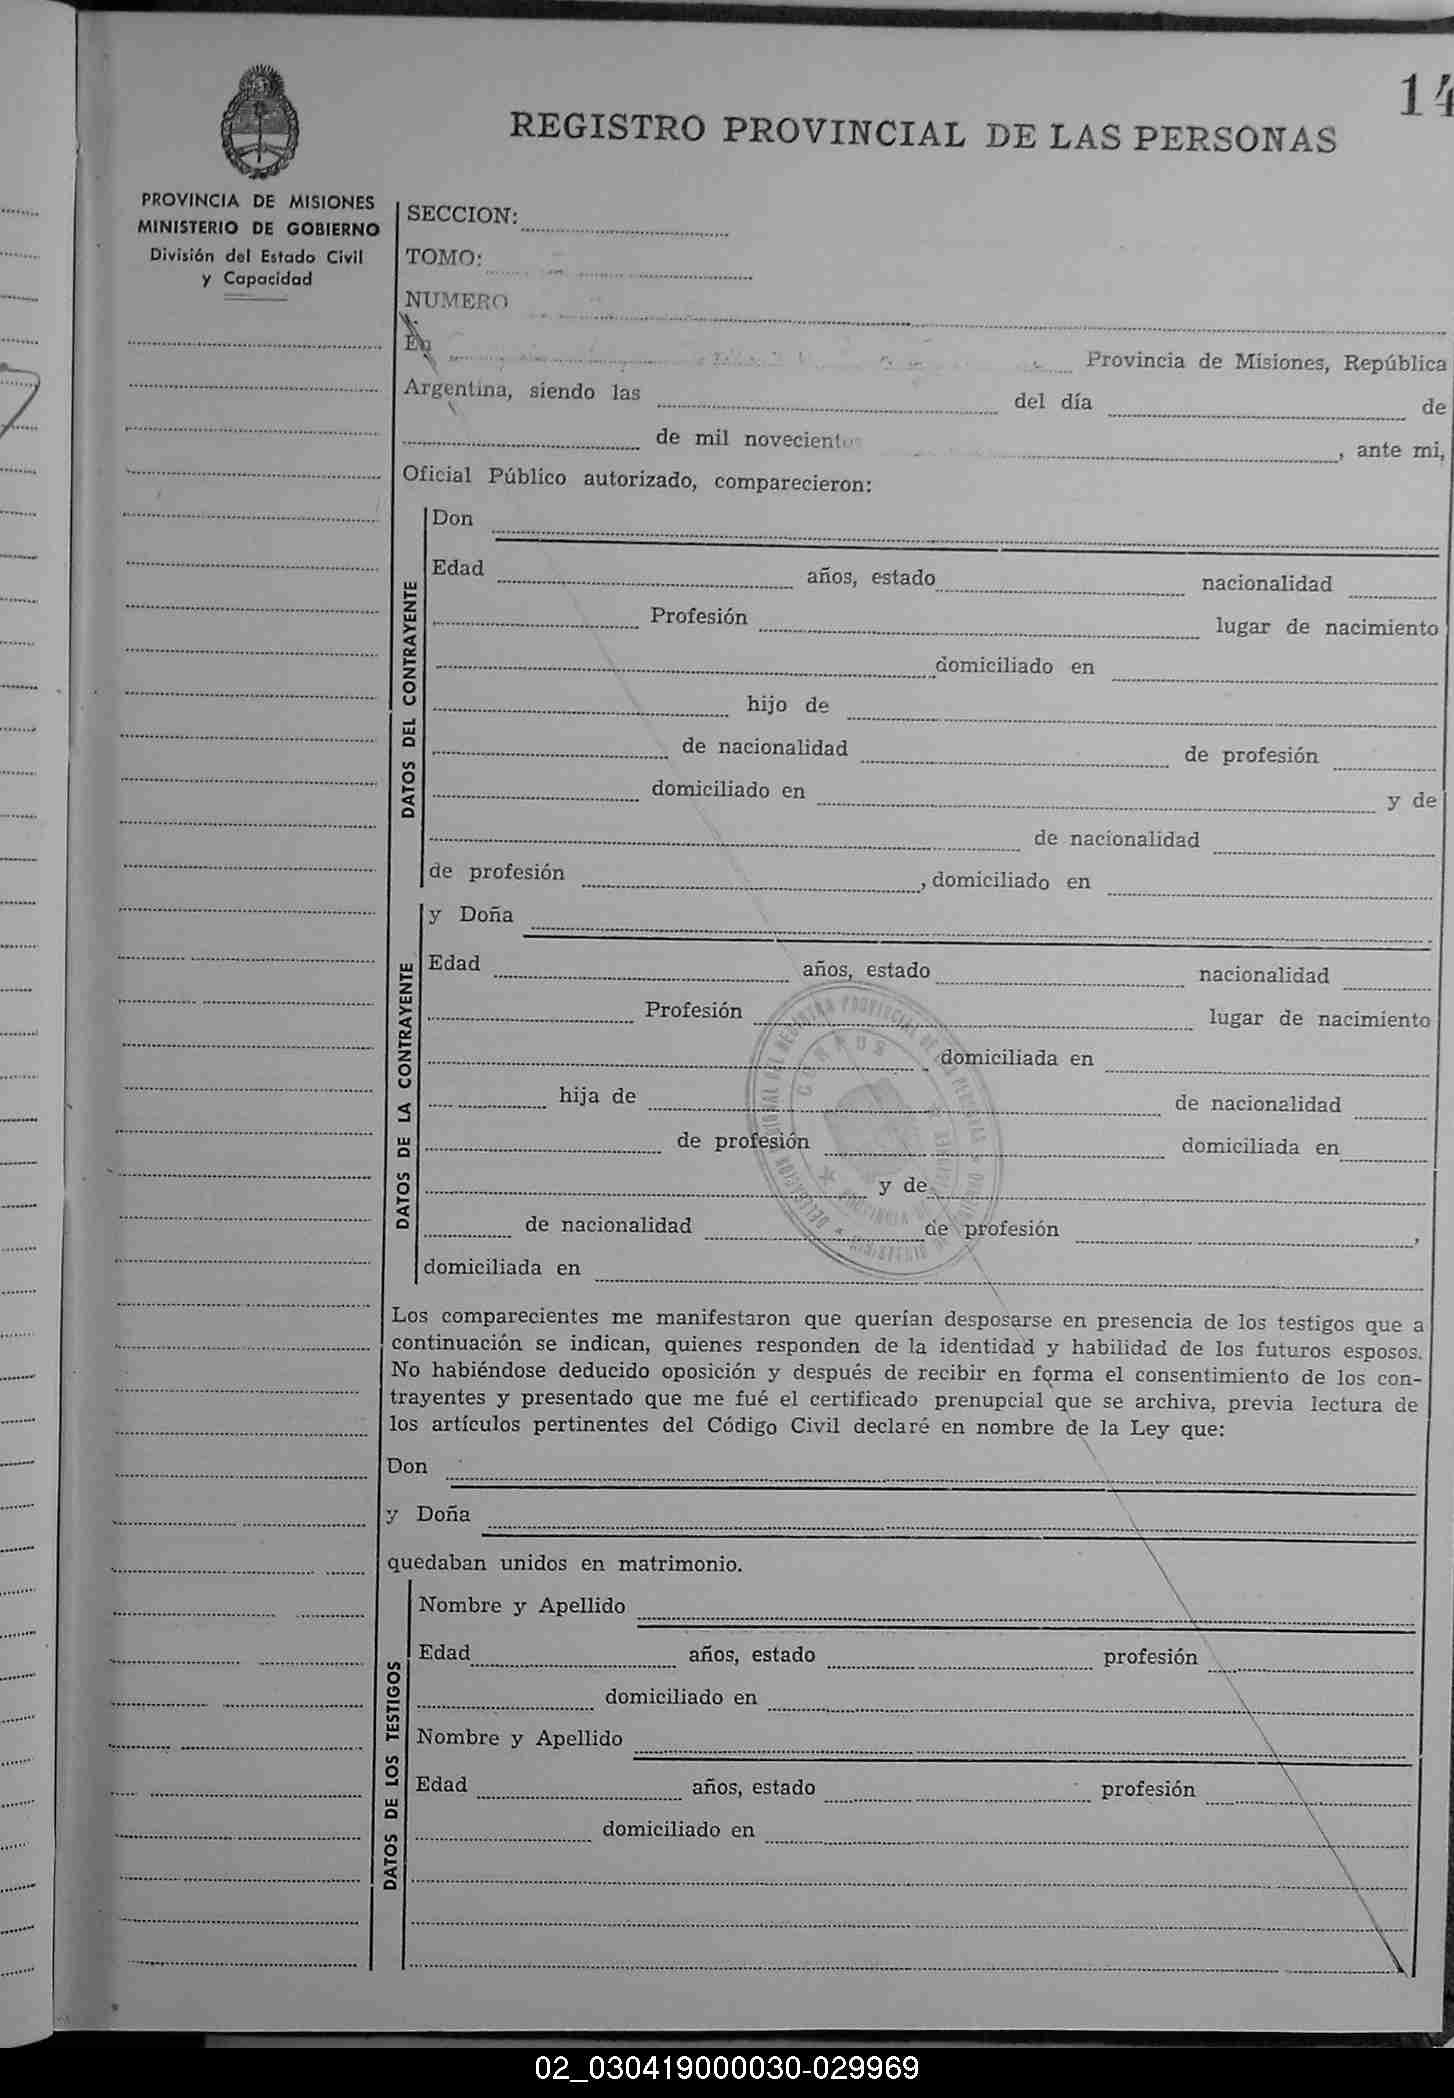 14
REGISTRO PROVINCIAL DE LAS PERSONAS
PROVINCIA DE MISIONES
MINISTERIO DE GOBIERNO
División del Estado Civil
y Capacidad
SECCION:
TOMO:
NUMERO
En Provincia de Misiones, República
Argentina, siendo las del día de
de mil novecientos , ante mi,
Oficial Público autorizado, comparecieron:
DATOS DEL CONTRAYENTE
Don
Edad años, estado nacionalidad
Profesión lugar de nacimiento
domiciliado en
hijo de
de nacionalidad de profesión
domiciliado en y de
de nacionalidad
de profesión , domiciliado en
DATOS DE LA CONTRAYENTE
y Doña
Edad años, estado nacionalidad
Profesión lugar de nacimiento
domiciliada en
hija de de nacionalidad
de profesión domiciliada en
y de
de nacionalidad de profesión ,
domiciliada en
DELEGACION DEL REGISTRO PROVINCIAL DE LAS PERSONAS
CORPUS
Los comparecientes me manifestaron que querían desposarse en presencia de los testigos que a
continuación se indican, quienes responden de la identidad y habilidad de los futuros esposos.
No habiéndose deducido oposición y después de recibir en forma el consentimiento de los con-
trayentes y presentado que me fué el certificado prenupcial que se archiva, previa lectura de
los artículos pertinentes del Código Civil declaré en nombre de la Ley que:
Don
y Doña
quedaban unidos en matrimonio.
DATOS DE LOS TESTIGOS
Nombre y Apellido
Edad años, estado profesión
domiciliado en
Nombre y Apellido
Edad años, estado profesión
domiciliado en
02_030419000030-029969